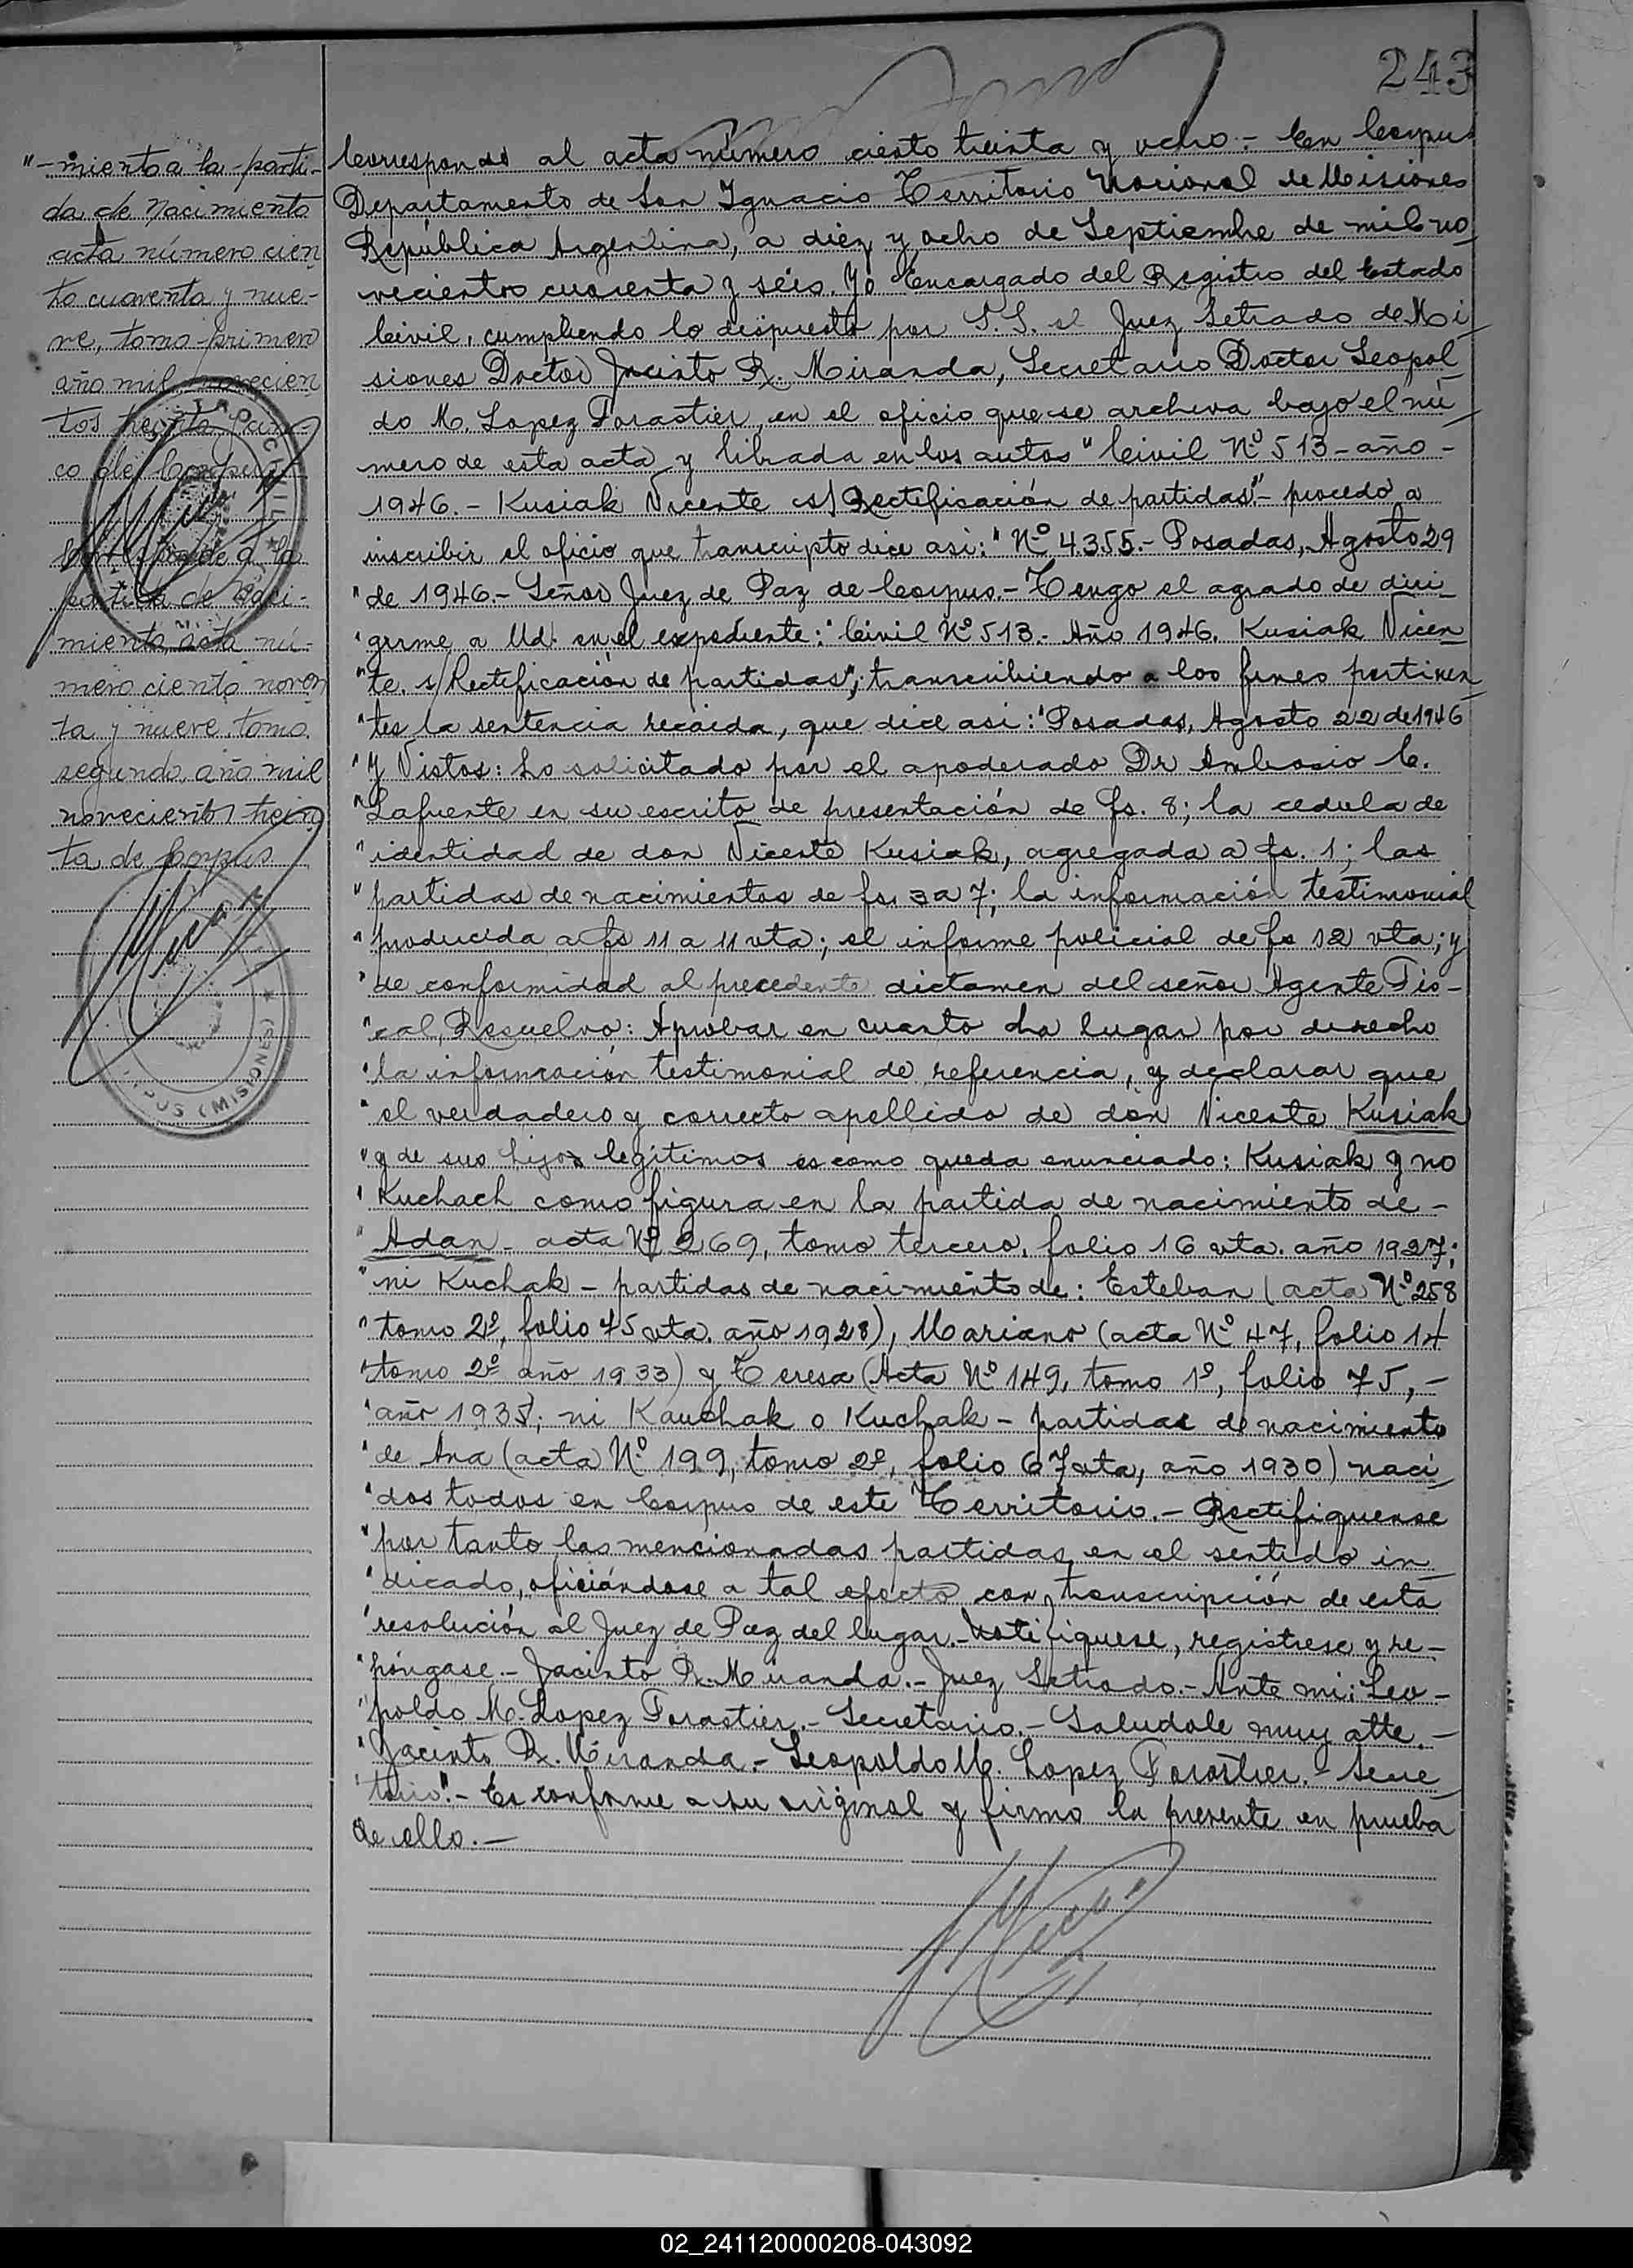 243
"-miento a la parti-
da de Nacimiento
acta número cien
to cuarenta y nue-
ve, tomo primero
año mil novecien
tos treinta
co de Corpus
Corresponde a la
partida de Naci-
miento acta nú-
mero ciento noven
ta y nueve, tomo
segundo año mil
novecientos trein
ta de Corpus
PUS (MISIONES)
Corresponde al acta número ciento treinta y ocho.- En Corpus
Departamento de San Ignacio Territorio Nacional de Misiones
República Argentina, a diez y ocho de Septiembre de mil no
vecientos cuarenta y séis. Yo Encargado del Registro del Estado
Civil, cumpliendo lo dispuesto por S.S. el Juez Letrado de Mi
siones Doctor Jacinto R. Miranda, Secretario Doctor Leopol
do M. Lopez Forastier, en el oficio que se archiva bajo el nú
mero de esta acta y librada en los autos "Civil Nº 513-año-
1946.- Kusiak Vicente s/ Rectificación de partidas".- procedo a
inscribir el oficio que transcripto dice asi: "Nº 4355.- Posadas, Agosto 29
"de 1946.- Señor Juez de Paz de Corpus.- Tengo el agrado de diri
"girme a Ud. en el expediente: "Civil Nº 513.- Año 1946. Kusiak Vicen
"te. s/Rectificación de partidas", transcribiendo a los fines pertinen
"tes la sentencia recaida, que dice asi: "Posadas, Agosto 22 de 1946
"Y Vistos: Lo solicitado por el apoderado Dr Ambrosio C.
"Lafuente en su escrito de presentación de fs. 8; la cedula de
"identidad de don Vicente Kusiak, agregada a fs. 1; las
"partidas de nacimientos de fs. 3 a 7; la información testimonial
"producida a fs 11 a 11 vta; el informe policial de fs 12 vta; y
"de conformidad al precedente dictamen del señor Agente Fis-
"cal, Resuelvo: Aprobar en cuanto ha lugar por derecho
"la información testimonial de referencia, y declarar que
"el verdadero y correcto apellido de don Vicente Kusiak
"y de sus hijos legítimos es como queda enunciado: Kusiak y no
"Kuchach como figura en la partida de nacimiento de-
"Adan- acta Nº 269, tomo tercero, folio 16 vta. año 1927;
"ni Kuchak - partidas de nacimiento de: Esteban (acta Nº 258
"tomo 2º, folio 45 vta. año 1928), Mariano (acta Nº 47, folio 14
"tomo 2º año 1933) y Teresa (Acta Nº 149, tomo 1º, folio 75,-
"año 1935; ni Kauchak o Kuchak - partidas de nacimiento
"de Ana (acta Nº 199, tomo 2º, folio 67 vta, año 1930) naci
"dos todos en Corpus de este Territorio.- Rectifiquense
"por tanto las mencionadas partidas en el sentido in
"dicado, oficiándose a tal efecto con transcripción de esta
"resolución al Juez de Paz del lugar.- Notifiquese, registrese y re-
"póngase.- Jacinto R. Miranda.- Juez Letrado.- Ante mi: Leo-
"poldo M. Lopez Forastier.- Secretario.- Saludole muy atte.-
"Jacinto R. Miranda.- Leopoldo M. Lopez Forastier.- Secre
"tario".- Es conforme a su original y firmo la presente en prueba
de ello.-
02_241120000208-043092